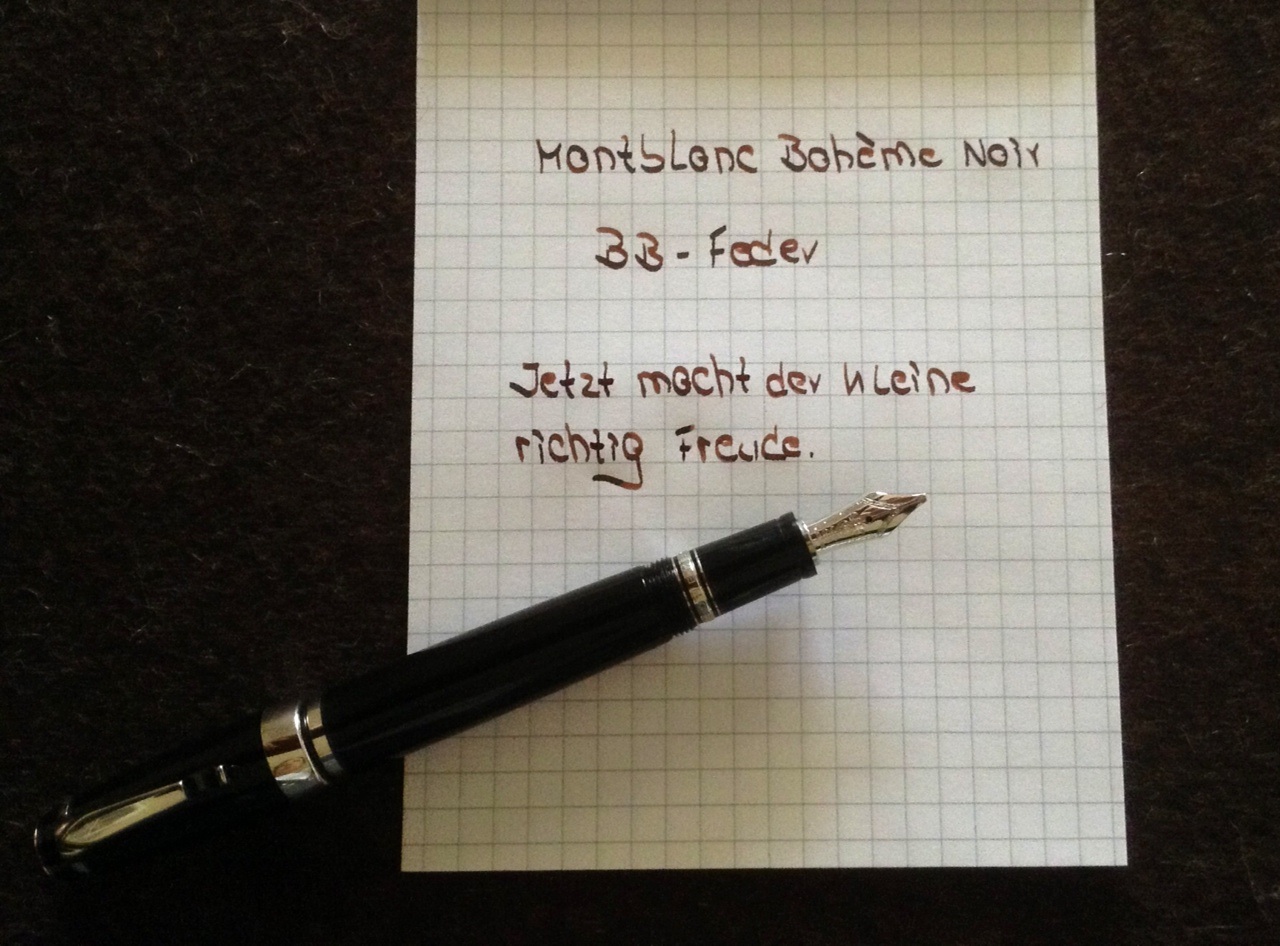 Montblanc Bohème Noir
BB - Feder
Jetzt macht der Kleine
richtig Freude.